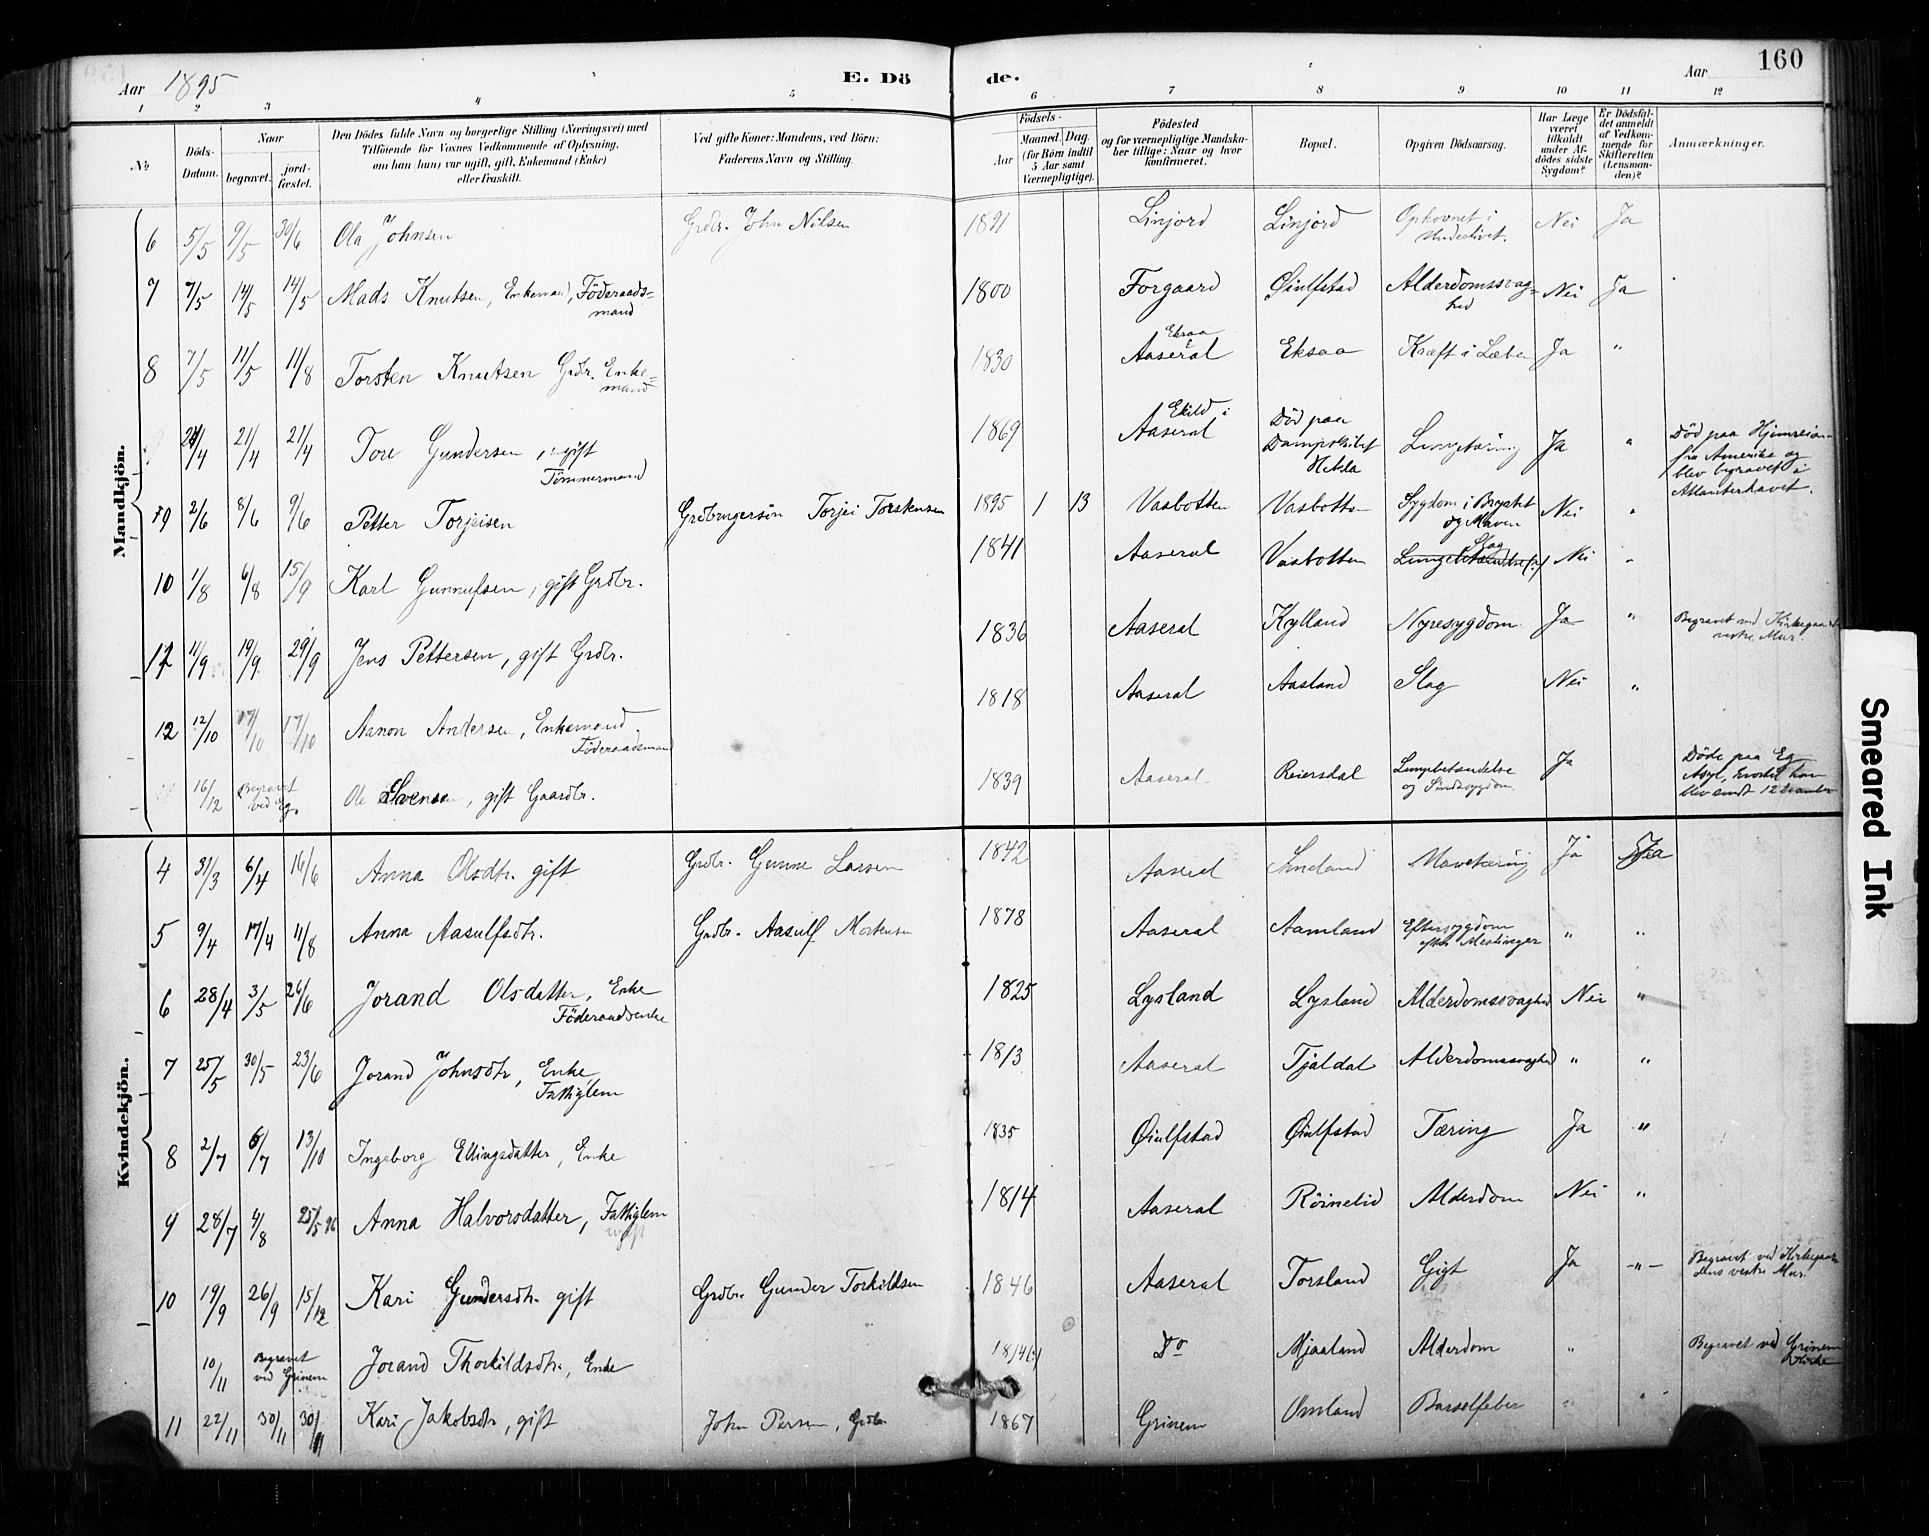 Aar 1895
E. Dö
de.
Aar
160
1 2 3 4 5 6 7 8 9 10 11 12
No
Döds-Datum.
Naar
begravet.
jord-fæstet.
Den Dödes fulde Navn og borgerlige Stilling (Næringsvei) med
Tilföiende for Voxnes Vedkommende af Oplysning,
om han (hun) var ugift, gift, Enkemand (Enke)
eller fraskilt.
Ved gifte Koner: Mandens, ved Börn:
Faderens Navn og Stilling.
Födsels-
Aar
Maaned. Dag.
(for Börn indtil
5 Aar samt
Værnepligtige).
Födested
og for værnepligtige Mandska-
ber tillige: Naar og hvor
konfirmeret.
Bopæl.
Opgiven Dödsaarsag.
Har Læge
været
tilkaldt
under Af-
dödes sidste
Sygdom?
Er Dödsfal-
det anmeldt
af Vedkom-
mende for
Skifteretten
(Lensman-
den)?
Anmærkninger.
Mandkjön.
6 5/5 9/5 30/6 Ola Johnsen Grdbr. John Nilsen 1891 Linjord Linjord Ophovnet i Underlivet. Nei Ja
7 7/5 14/5 14/5 Mads Knutsen, Enkemand, Föderaads-
mand 1800 Forgaard Øiulfstad Alderdomssvag-
hed Nei Ja
8 7/5 11/5 11/8 Torsten Knutsen Grdbr. Enke-
mand 1830 Eksaa i Aaseral Eksaa Kræft i Læben Ja "
21/4 21/4 Tore Gundersen, ugift
Tömmermand 1869 Ekild i Aaseral Död paa Dampskibet Hekla Lungetæring Ja " Död paa Hjemreisen
fra Amerika og
blev begravet i
Atlanterhavet.
9 2/6 8/6 9/6 Petter Torjeisen Grdbrugersön Torjei Torstensen 1895 1 13 Vasbotten Vasbotten Sygdom i Brystet
og Maven Nei "
10 1/8 6/8 15/9 Karl Gunnufsen, gift Grdbr. 1841 Aaseral Vasbotten Slag Lungebetændelse (?) Nei "
11/9 19/9 29/9 Jens Pettersen, gift Grdbr. 1836 Aaseral Kylland Nyresygdom Ja " Begravet ved Kirkegaardens
vestre Mur.
12 12/10 17/10 17/10 Aanon Andersen, Enkemand
Föderaadsmand 1818 Aaseral Aasland Slag Nei "
16/12 Begravet
ved Eg. Ole Svensen, gift Gaardbr. 1839 Aaseral Reiersdal Lungebetændelse
og Sindssygdom Ja Döde paa Eg
Asyl, hvortil han
blev sendt 12 December
Kvindekjön.
4 31/3 6/4 16/6 Anna Olsdtr. gift Grdbr. Gunne Larsen 1842 Aaseral Mavetæring Ja Ja
5 9/4 17/4 11/8 Anna Aasulfsdtr. Grdbr. Aasulf Mortensen 1878 Aaseral Aamland Eftersygdom
efter Meslinger " "
6 28/4 3/5 26/6 Jorand Olsdatter, Enke
Föderaadsenke 1825 Lysland Lysland Alderdomssvaghed Nei "
7 25/5 30/5 23/6 Jorand Johnsdtr, Enke
Fattiglem 1813 Aaseral Tjaldal Alderdomssvaghed " "
8 2/7 6/7 13/10 Ingeborg Ellingsdatter, Enke 1835 Øiulfstad Øiulfstad Tæring Ja "
9 28/7 4/8 25/5 96 Anna Halvorsdatter, Fattiglem
ugift 1814 Aaseral Röinelid Alderdom Nei "
10 19/9 26/9 15/12 Kari Gundersdtr. gift Grdbr. Gunder Torkildsen 1846 Aaseral Torsland Gigt Ja -"- Begravet ved Kirkegaar-
dens vestre Mur.
10/11 Begravet
ved Grinem Jorand Thorkildsdtr., Enke Do Mjaaland Alderdom " Begravet ved Grinem
Kirke
11 22/11 30/11 30/11 Kari Jakobsdtr, gift John Persen, Grdbr. 1867 Grinem Omland Barselfeber " "
Smeared Ink